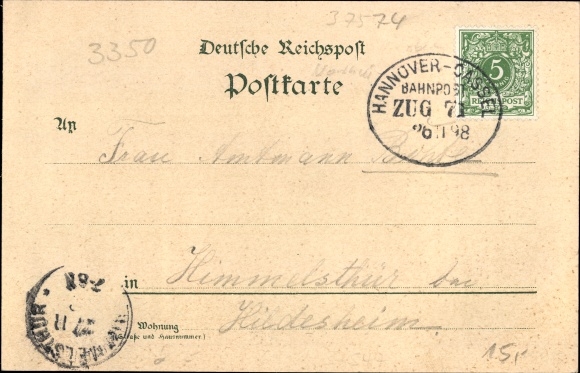 37574
3350
Deutsche Reichspost
Postkarte
5
REICHSPOST
HANNOVER-CASSEL
BAHNPOST
ZUG 71
26 11 98
An
Frau Amtmann
in Himmelsthür bei
Hildesheim
Wohnung
(Straße und Hausnummer)
HIMMELSTHÜR
27 11
7-8N
15,-